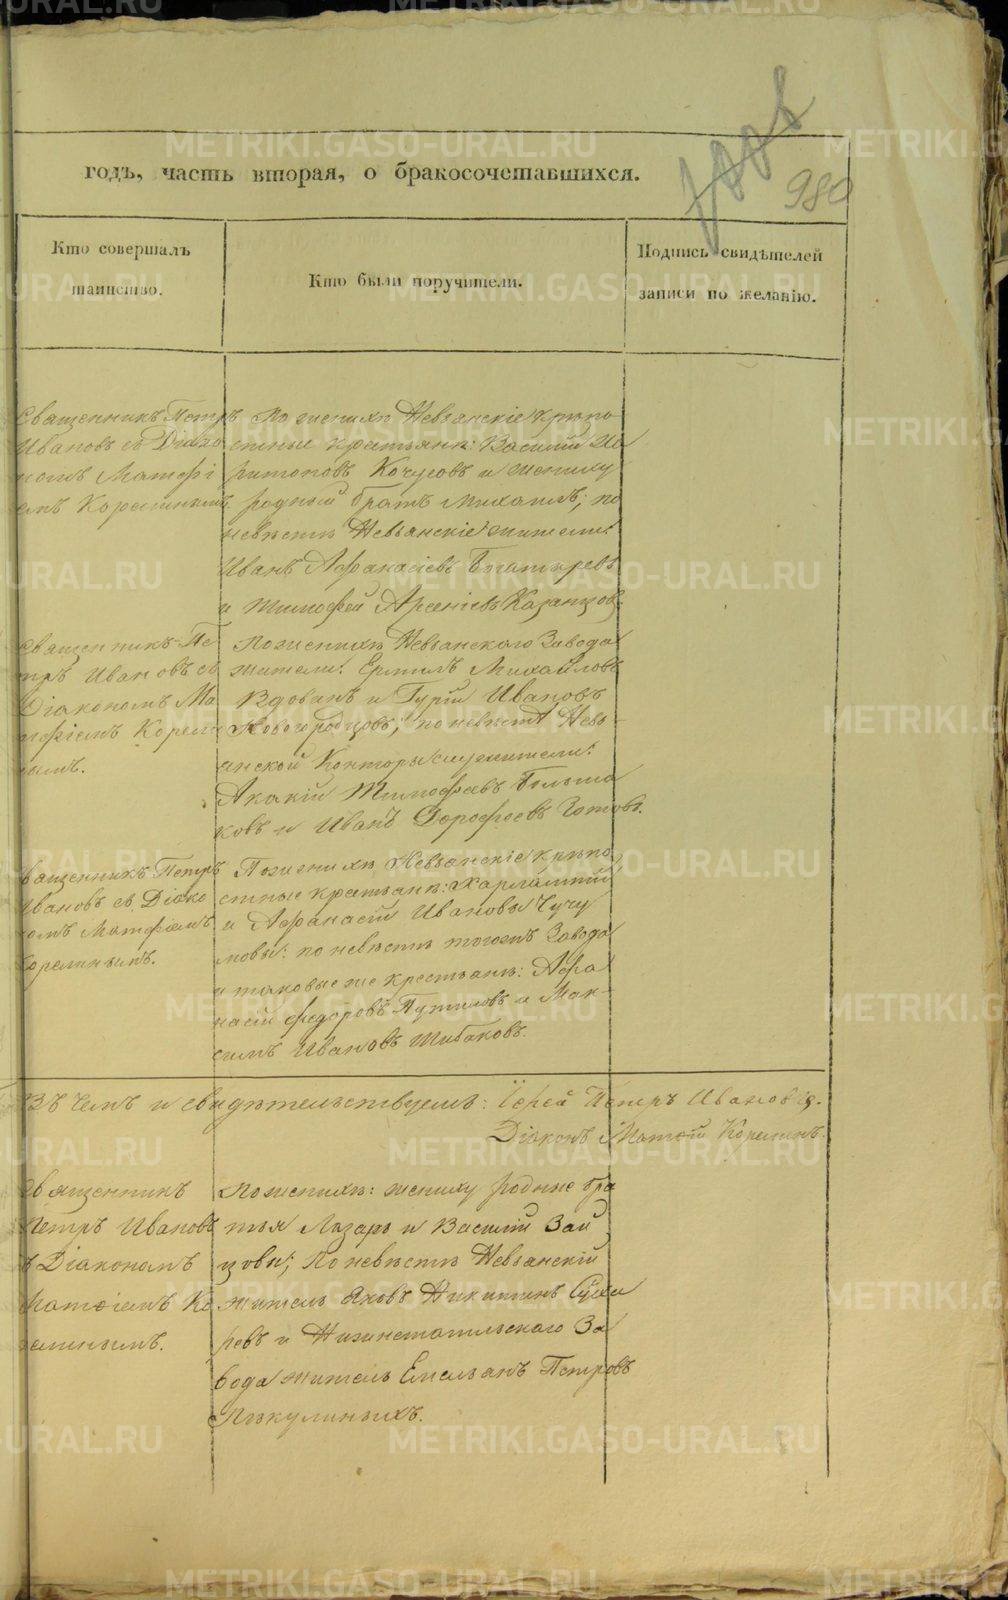 годъ, часть вторая, о бракосочетавшихся.
980
Кто совершалъ
таинство.
Кто были поручители.
Подпись свидѣтелей
записи по желанію.
Священникъ Петръ
Ивановъ съ Діако
номъ Матѳі
емъ Корелинымъ.
По женихѣ Невьянскіе крѣпо
стные крестьяне: Василій
Кочусовъ и жениху
родный братъ Михаилъ; по
невѣстѣ Невьянскіе жители:
Иванъ Афанасіевъ Богатыревъ
и Тимофей Арсеніевъ Казанцовъ.
Священникъ Пе
тръ Ивановъ съ
Діакономъ Ма
тфіемъ Корели
нымъ.
По женихѣ Невьянскаго Завода
жители: Ермилъ Михайловъ
Вдовинъ и Гурій Ивановъ
Новогородцовъ; по невѣстѣ Невь-
анской Конторы служители:
Акакій Тимофѣевъ Больша
ковъ и Иванъ Дорофеевъ Готовъ.
вященникъ Петръ
Ивановъ съ Діако
номъ Матфіемъ
Корелинымъ.
По женихѣ Невьянскіе крѣпо
стные крестьяне: Харлампій
и Афанасій Ивановы Чучу
мовы: по невѣстѣ тогожъ Завода
и таковые же крестьяне: Афа
насій Федоровъ Путиловъ и Мак-
симъ Ивановъ Шибаковъ.
Въ чемъ и свидѣтельствуемъ: Іерей Петръ Ивановъ
Діаконъ Матѳей Корелинъ.
Священникъ
Петръ Ивановъ
ъ Діакономъ
Матѳіемъ Ко
релинымъ.
По женихѣ: жениху родные бра
тья Лазарь и Василій Зай
цовы; По невѣстѣ Невьянскій
житель Яковъ Никитинъ Суха
ревъ и Нижнетагильскаго За
вода житель Емельянъ Петровъ
Пѣкулиныхъ.
METRIKI.GASO-URAL.RU